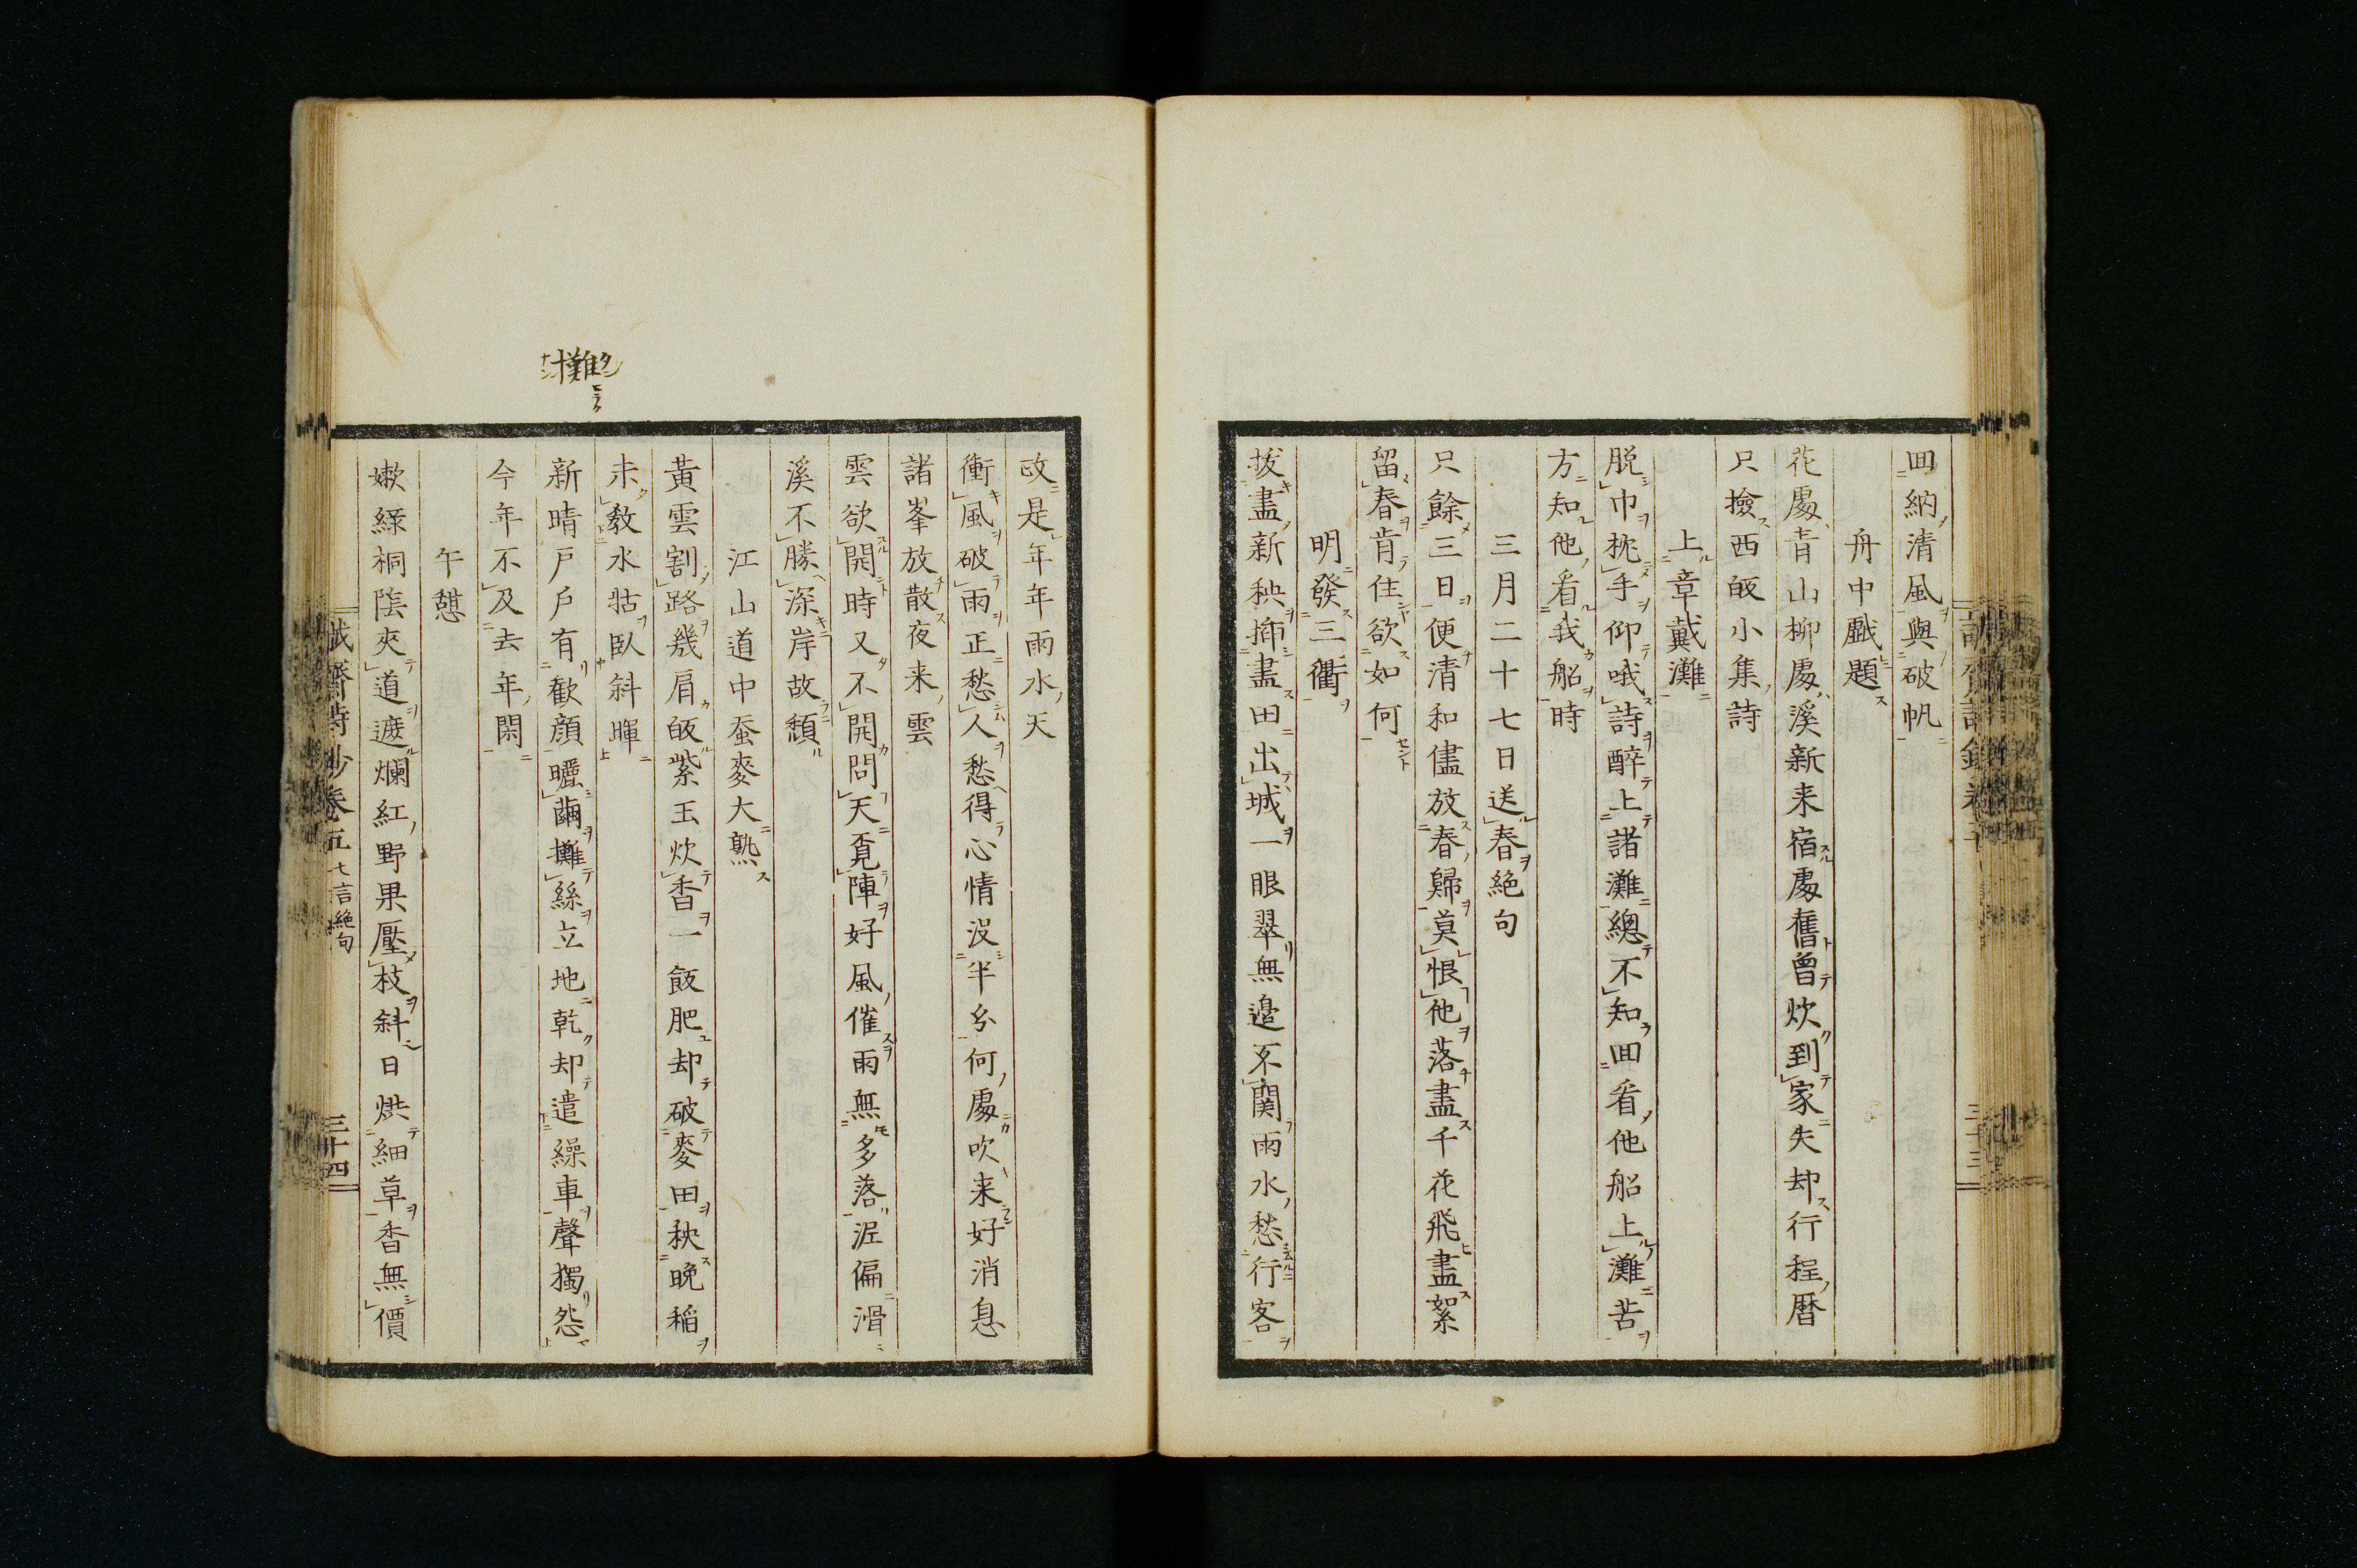 囬納清風與破帆
舟中戲題
花處青山柳處溪新来宿處舊曾炊到家失却行程暦
只撿西皈小集詩
上章戴灘
脱巾枕手仰哦詩醉上諸灘總不知囬看他船上灘苦
方知他看我船時
三月二十七日送春絶句
只餘三日便清和儘放春歸莫恨他落盡千花飛盡絮
留春肯住欲如何
明發三衢
拔盡新秧揷盡田出城一眼翠無邉不関雨水愁行客
改是年年雨水天
衝風破雨正愁人愁得心情没半分何處吹来好消息
諸峯放散夜来雲
雲欲開時又不開問天覔陣好風催雨無多落泥偏滑
溪不勝深岸故頽
江山道中蚕麥大熟
黄雲割路幾肩皈紫玉炊香一飯肥却破麥田秧晚稻
未教水牯臥斜暉
新晴戸戸有歡顔曬繭攤絲立地乾却遣繰車聲獨怨
今年不及去年閑
午憩
嫰緑桐陰夾道遮爛紅野果壓枝斜日烘細草香無價
誠齋詩鈔卷五 七言絶句 三十四
攤